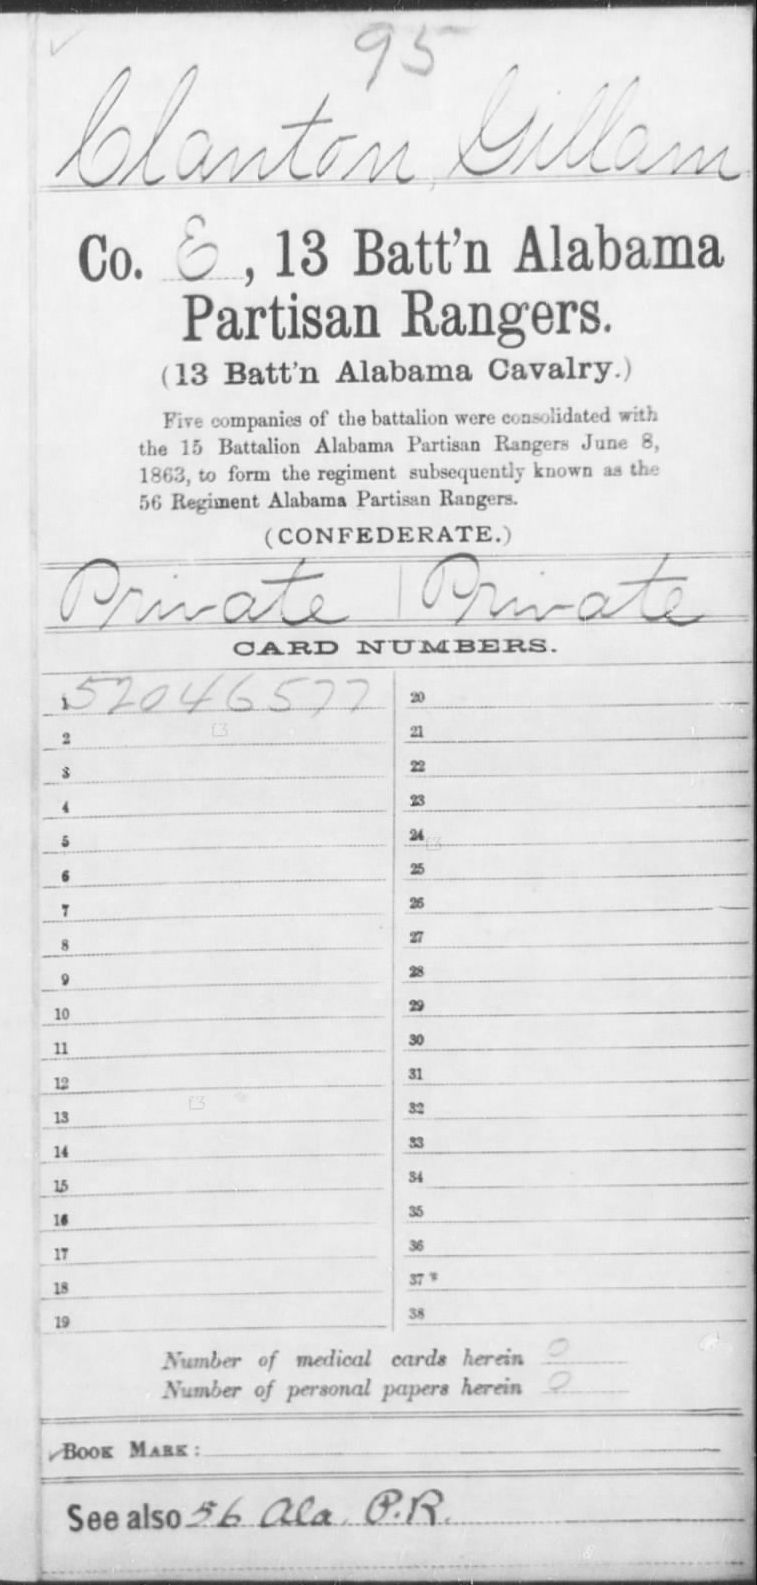 95
Clanton, Gillam
Co. E, 13 Batt'n Alabama
Partisan Rangers.
(13 Batt'n Alabama Cavalry.)
Five companies of the battalion were consolidated with
the 15 Battalion Alabama Partisan Rangers June 8,
1863, to form the regiment subsequently known as the
56 Regiment Alabama Partisan Rangers.
(CONFEDERATE.)
Private | Private
CARD NUMBERS.
1 52046577
2
3
4
5
6
7
8
9
10
11
12
13
14
15
16
17
18
19
20
21
22
23
24
25
26
27
28
29
30
31
32
33
34
35
36
37
38
Number of medical cards herein 0
Number of personal papers herein 0
BOOK MARK:
See also 56 Ala. P.R.